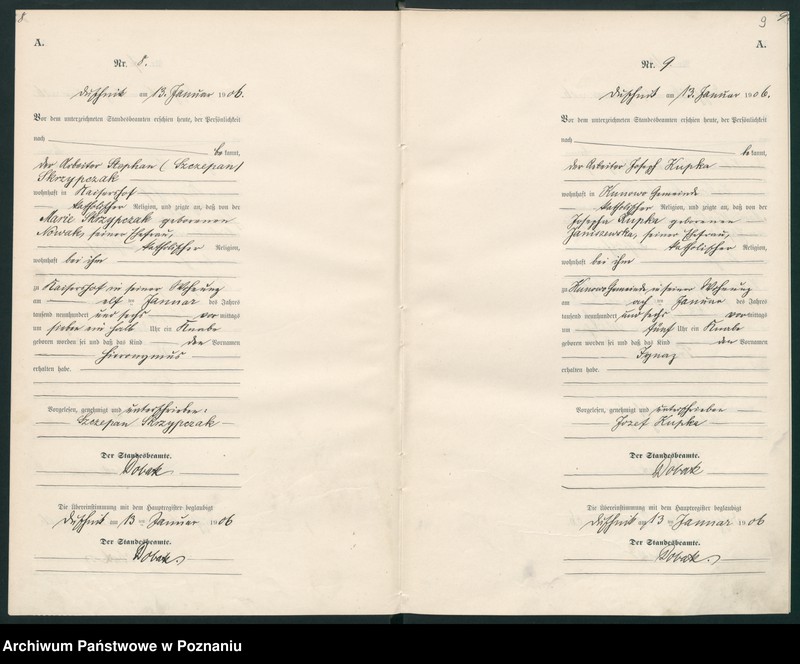 8.
A.
Nr. 8.
Duschnik am 13. Januar 1906.
Vor dem unterzeichneten Standesbeamten erschien heute, der Persönlichkeit
nach
be kannt,
der Arbeiter Stephan (Szczepan)
Skrzypczak
wohnhaft in Kaisershof
katholischer Religion, und zeigte an, daß von der
Marie Skrzypczak geborenen
Nowak, seiner Ehefrau,
katholischer Religion,
wohnhaft bei ihm
zu Kaisershof in seiner Wohnung
am elf ten Januar des Jahres
tausend neunhundert und sechs vormittags
um sieben ein halb Uhr ein Knabe
geboren worden sei und daß das Kind den Vornamen
Hieronymus
erhalten habe.
Vorgelesen, genehmigt und unterschrieben:
Szczepan Skrzypczak
Der Standesbeamte.
Dobak
Die Übereinstimmung mit dem Hauptregister beglaubigt
Duschnik am 13 ten Januar 1906
Der Standesbeamte.
Dobak.
9
A.
Nr. 9
Duschnik am 13. Januar 1906.
Vor dem unterzeichneten Standesbeamten erschien heute, der Persönlichkeit
nach
be kannt,
der Arbeiter Joseph Kupka
wohnhaft in Kunowo Gemeinde
katholischer Religion, und zeigte an, daß von der
Josepha Kupka geborenen
Janiszewska, seiner Ehefrau,
katholischer Religion,
wohnhaft bei ihm
zu Kunowo Gemeinde, in seiner Wohnung
am ach ten Januar des Jahres
tausend neunhundert und sechs vormittags
um fünf Uhr ein Knabe
geboren worden sei und daß das Kind den Vornamen
Ignaz
erhalten habe.
Vorgelesen, genehmigt und unterschrieben
Jozef Kupka
Der Standesbeamte.
Dobak
Die Übereinstimmung mit dem Hauptregister beglaubigt
Duschnik am 13 ten Januar 1906
Der Standesbeamte.
Dobak.
Archiwum Państwowe w Poznaniu